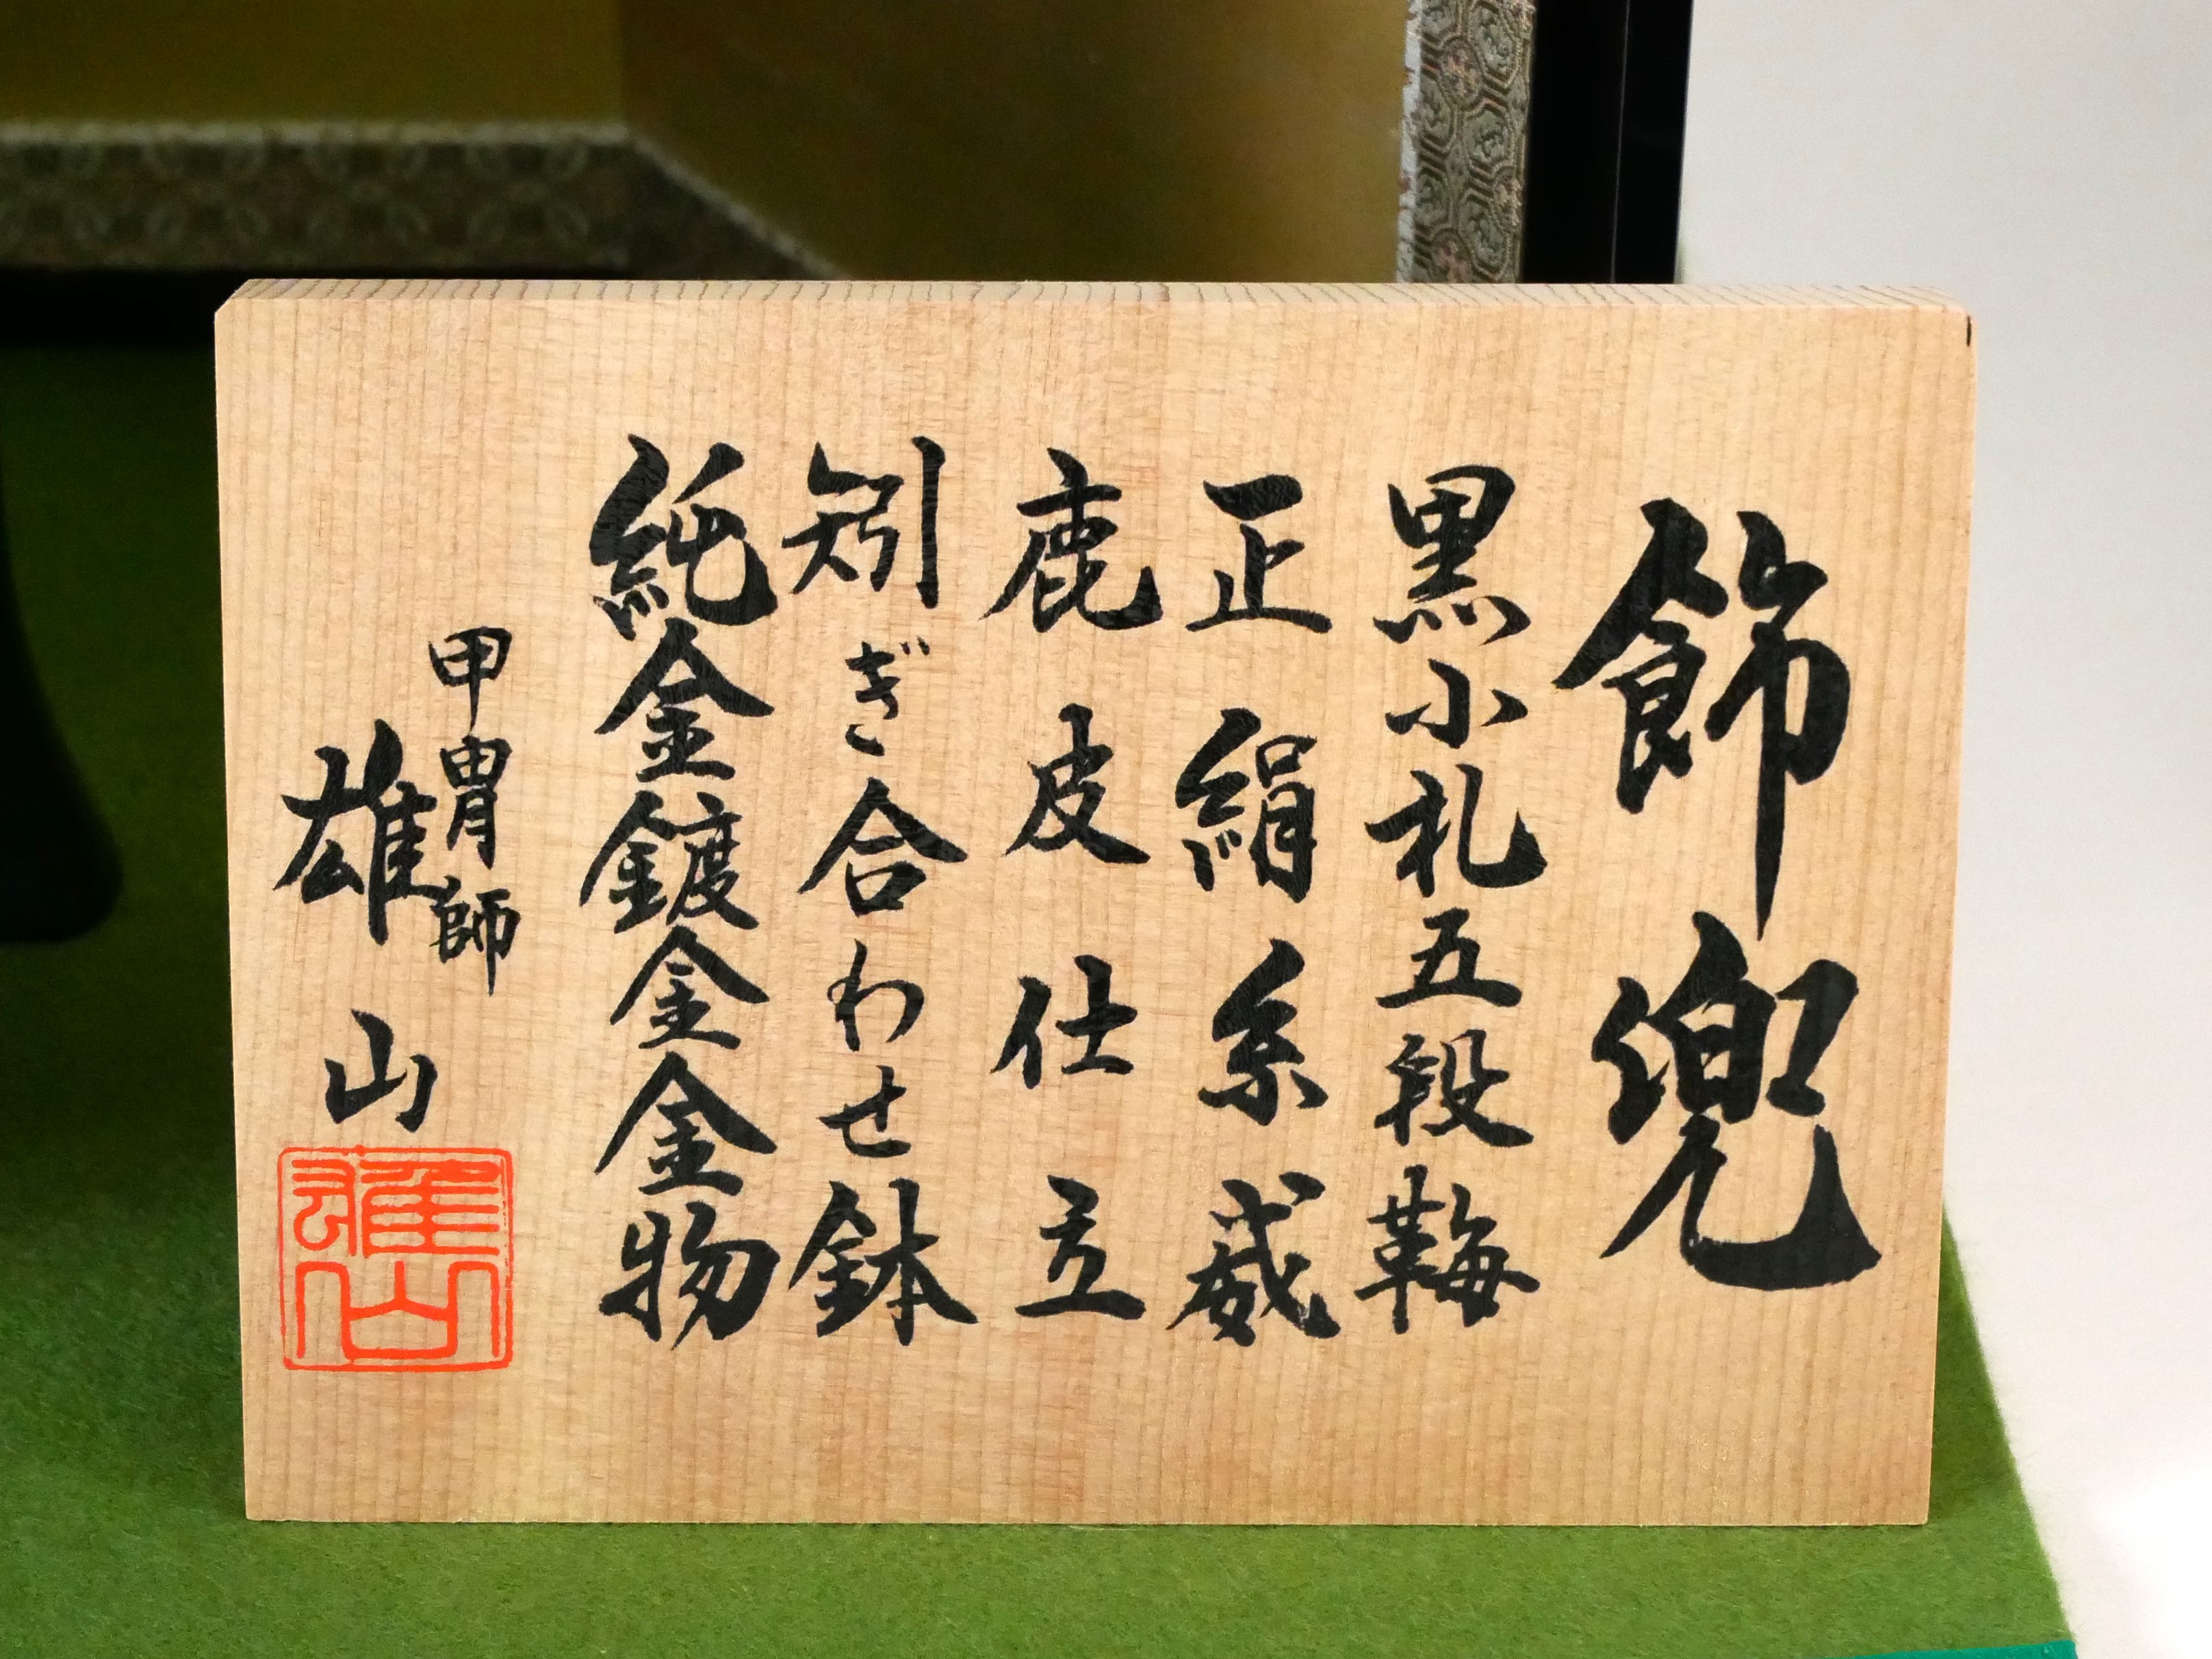 飾兜
黒小札五段𩊱
正絹糸威
鹿皮仕立
矧ぎ合わせ鉢
純金鍍金金物
甲冑師
雄山
雄山